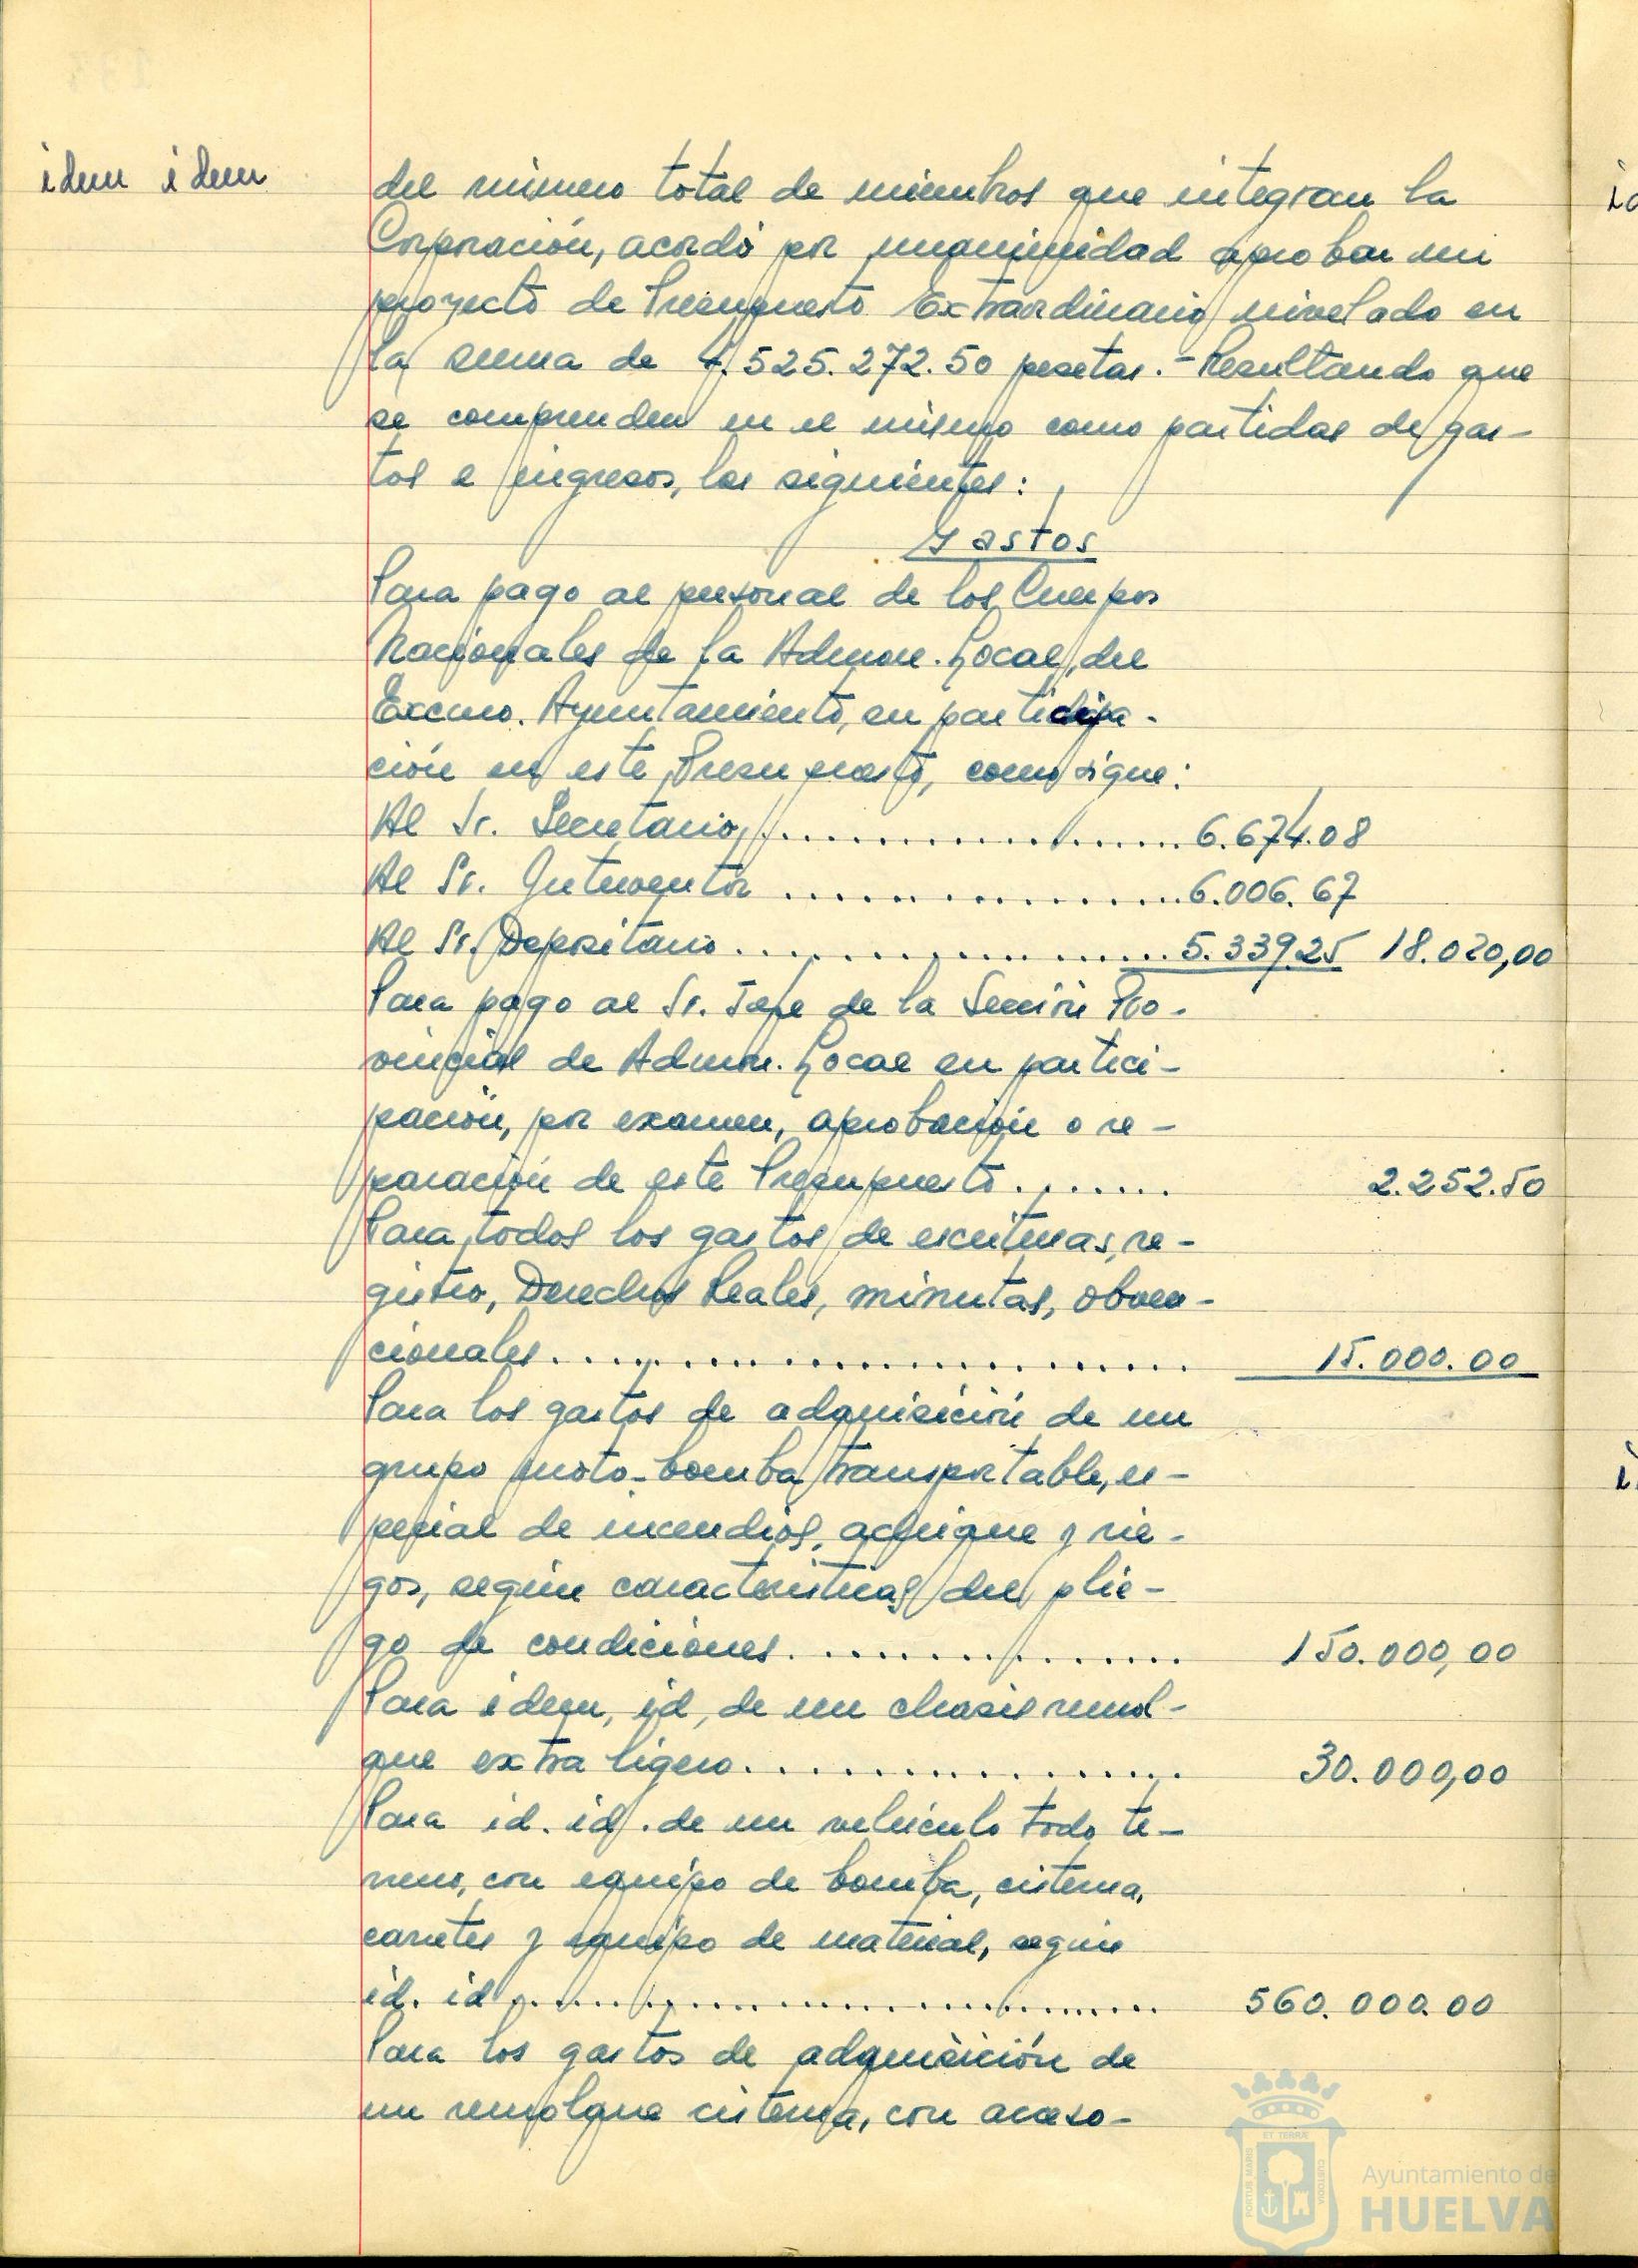 idem idem
del número total de miembros que integran la
Corporación, acordó por unanimidad aprobar un
proyecto de Presupuesto Extraordinario nivelado en
la suma de 4.525.272.50 pesetas.- Resultando que
se comprenden en el mismo como partidas de gas-
tos e ingresos, las siguientes:
Gastos
Para pago al personal de los Cuerpos
Nacionales de la Admon. Local, del
Excmo. Ayuntamiento, en participa-
ción en este Presupuesto, como sigue:
Al Sr. Secretario, .................. 6.674.08
Al Sr. Interventor .................. 6.006.67
Al Sr. Depositario .................. 5.339.25 18.020,00
Para pago al Sr. Jefe de la Sección Pro-
vincial de Admon. Local en partici-
pación, por examen, aprobación o re-
paración de este Presupuesto ........ 2.252.50
Para todos los gastos de escrituras, re-
gistro, Derechos Reales, minutas, obven-
cionales .......................... 15.000.00
Para los gastos de adquisición de un
grupo moto-bomba transportable, es-
pecial de incendios, achique y rie-
gos, según características del plie-
go de condiciones ................ 150.000,00
Para idem, id, de un chasis remol-
que extra ligero .................. 30.000,00
Para id. id. de un vehículo todo te-
rreno, con equipo de bomba, cisterna,
carretes y equipo de material, según
id. id. ............................ 560.000.00
Para los gastos de adquisición de
un remolque cisterna, con acceso-
PORTUS MARIS ET TERRÆ CUSTODIA
Ayuntamiento de
HUELVA